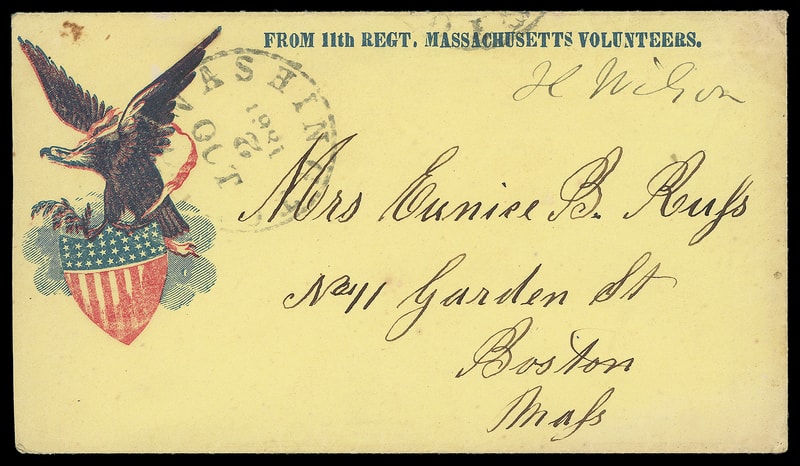 FROM 11th REGT. MASSACHUSETTS VOLUNTEERS.
H Wilson
WASHIN
1861
2
Mrs Eunice B. Ruſs
No 11 Garden St
Boston
Maſs